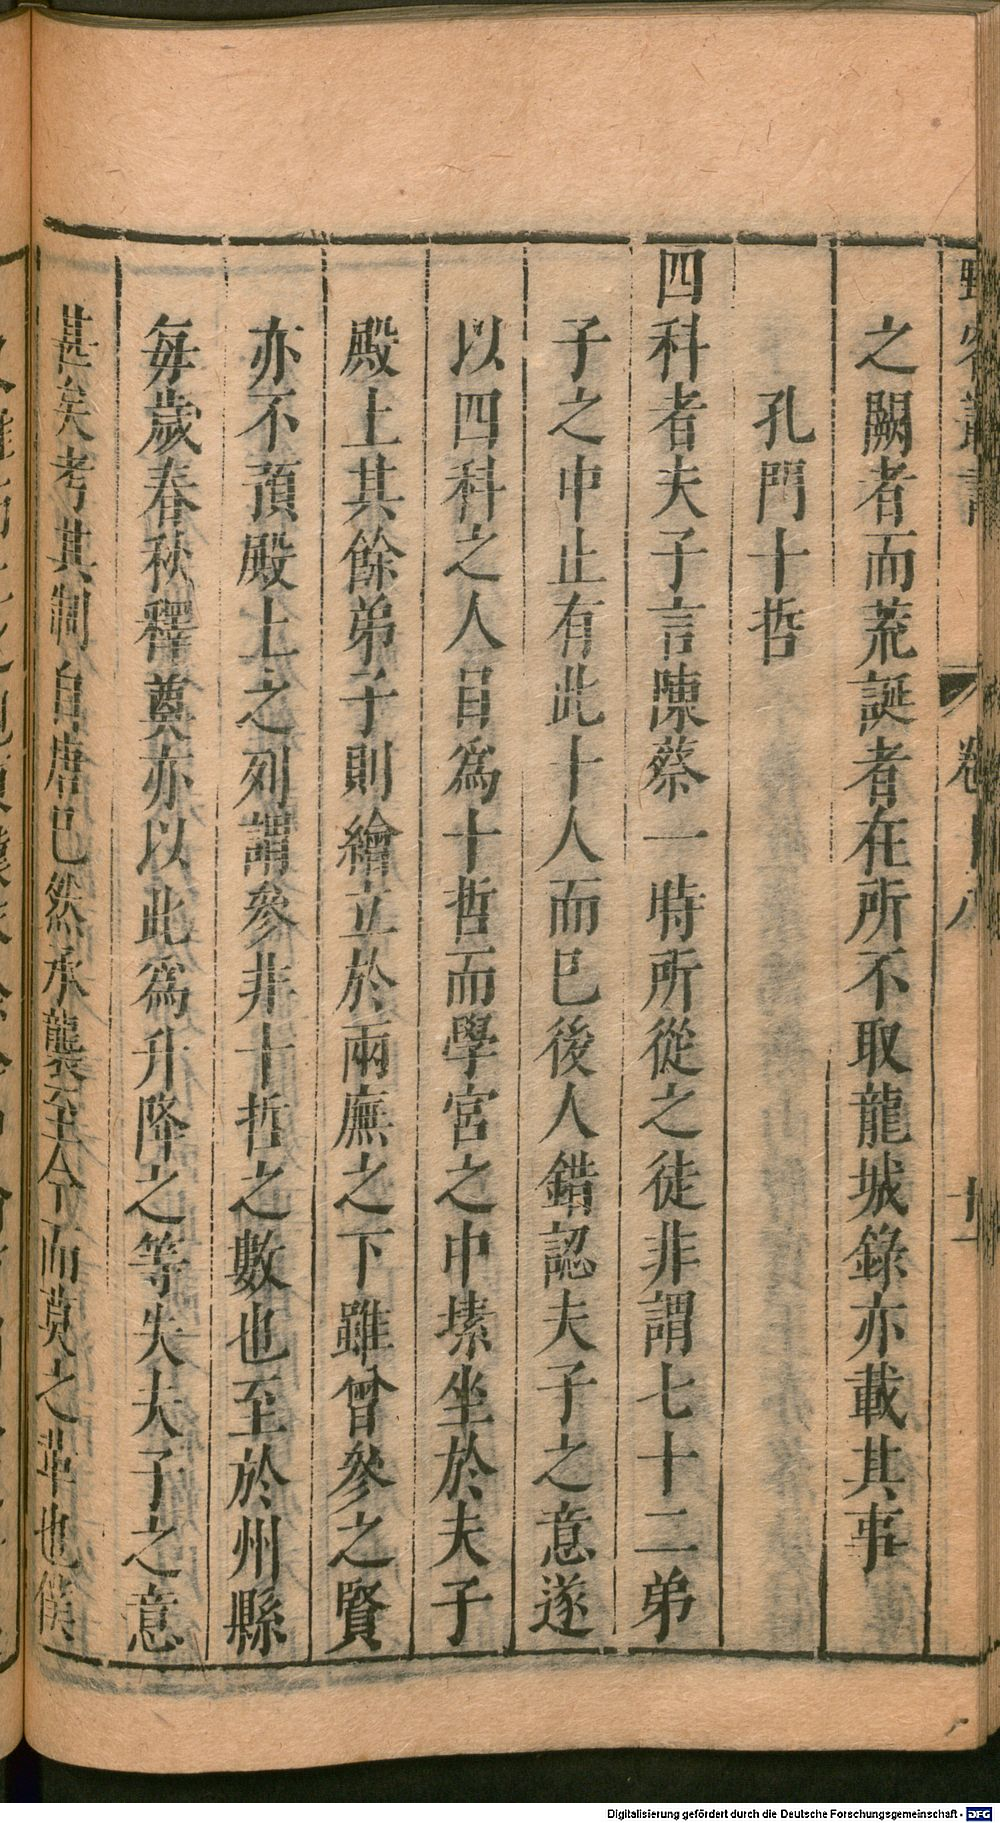 野客叢書
卷十八
之闕者而荒誕者在所不取龍城錄亦載其事
孔門十哲
四科者夫子言陳蔡一時所從之徒非謂七十二弟
子之中止有此十人而已後人錯認夫子之意遂
以四科之人目爲十哲而學宮之中塐坐於夫子
殿上其餘弟子則繪立於兩廡之下雖曾參之賢
亦不預殿上之列謂參非十哲之數也至於州縣
每歲春秋釋奠亦以此爲升降之等失夫子之意
甚矣考其制自唐已然承襲至今而莫之革也僕
Digitalisierung gefördert durch die Deutsche Forschungsgemeinschaft - DFG